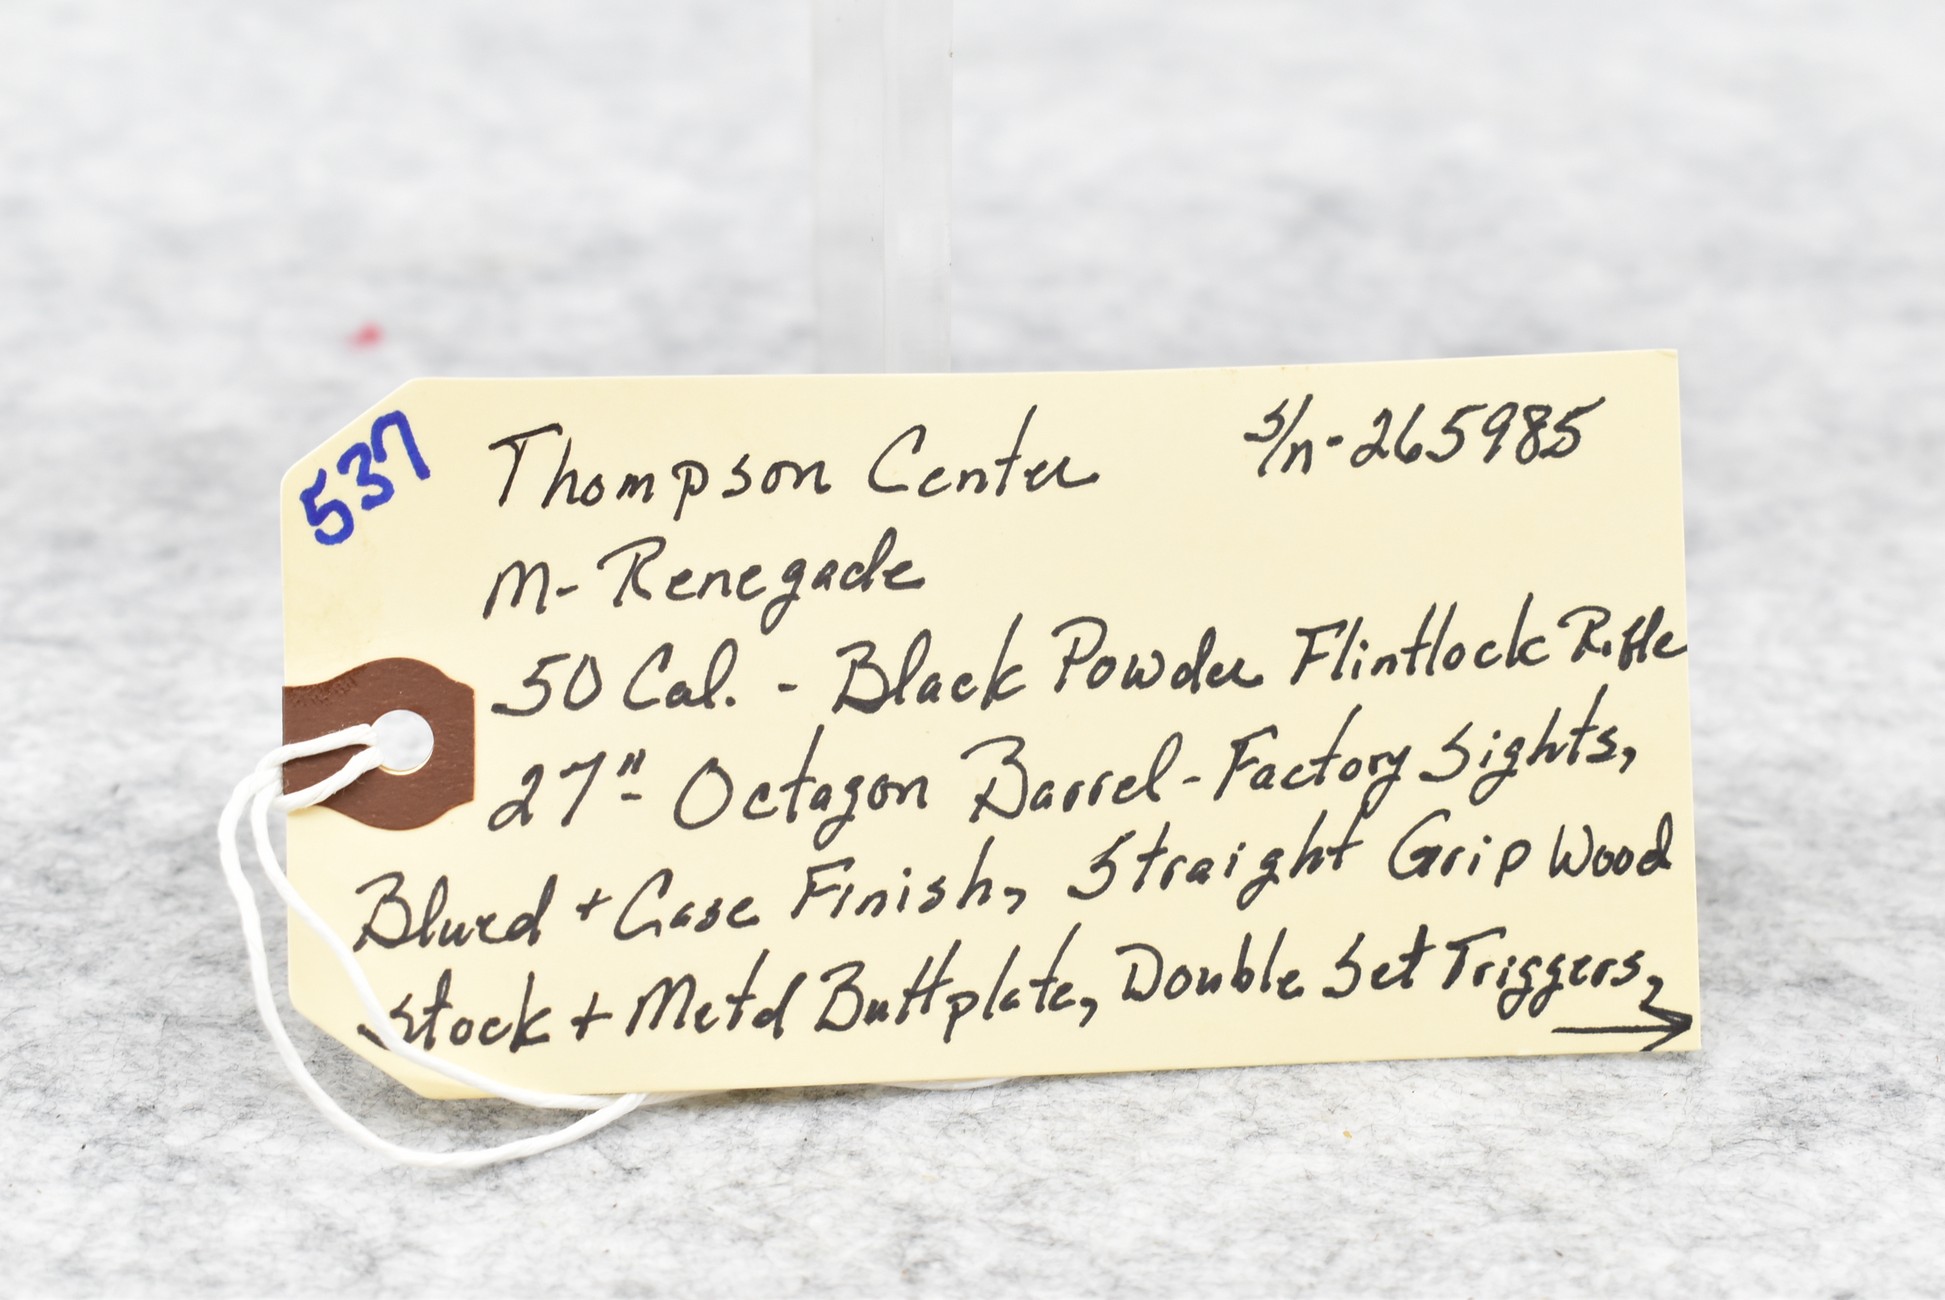 537
Thompson Center S/n-265985
M-Renegade
50 Cal. - Black Powder Flintlock Rifle
27"- Octagon Barrel-Factory Sights,
Blued + Case Finish, Straight Grip Wood
Stock + Metal Buttplate, Double Set Triggers,
→